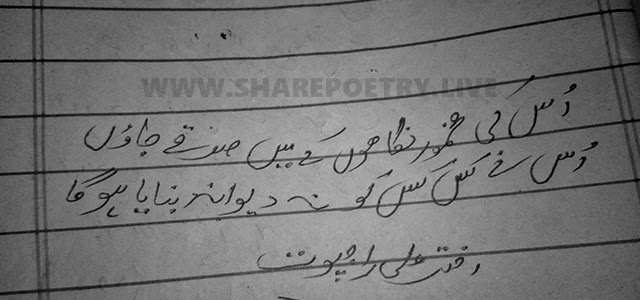 WWW.SHAREPOETRY.LIVE
اُس کی مخمور نگاھوں کے میں صدقے جاؤں
اُس نے کس کس کو نہ دیوانہ بنایا ہو گا
علی راجپوت